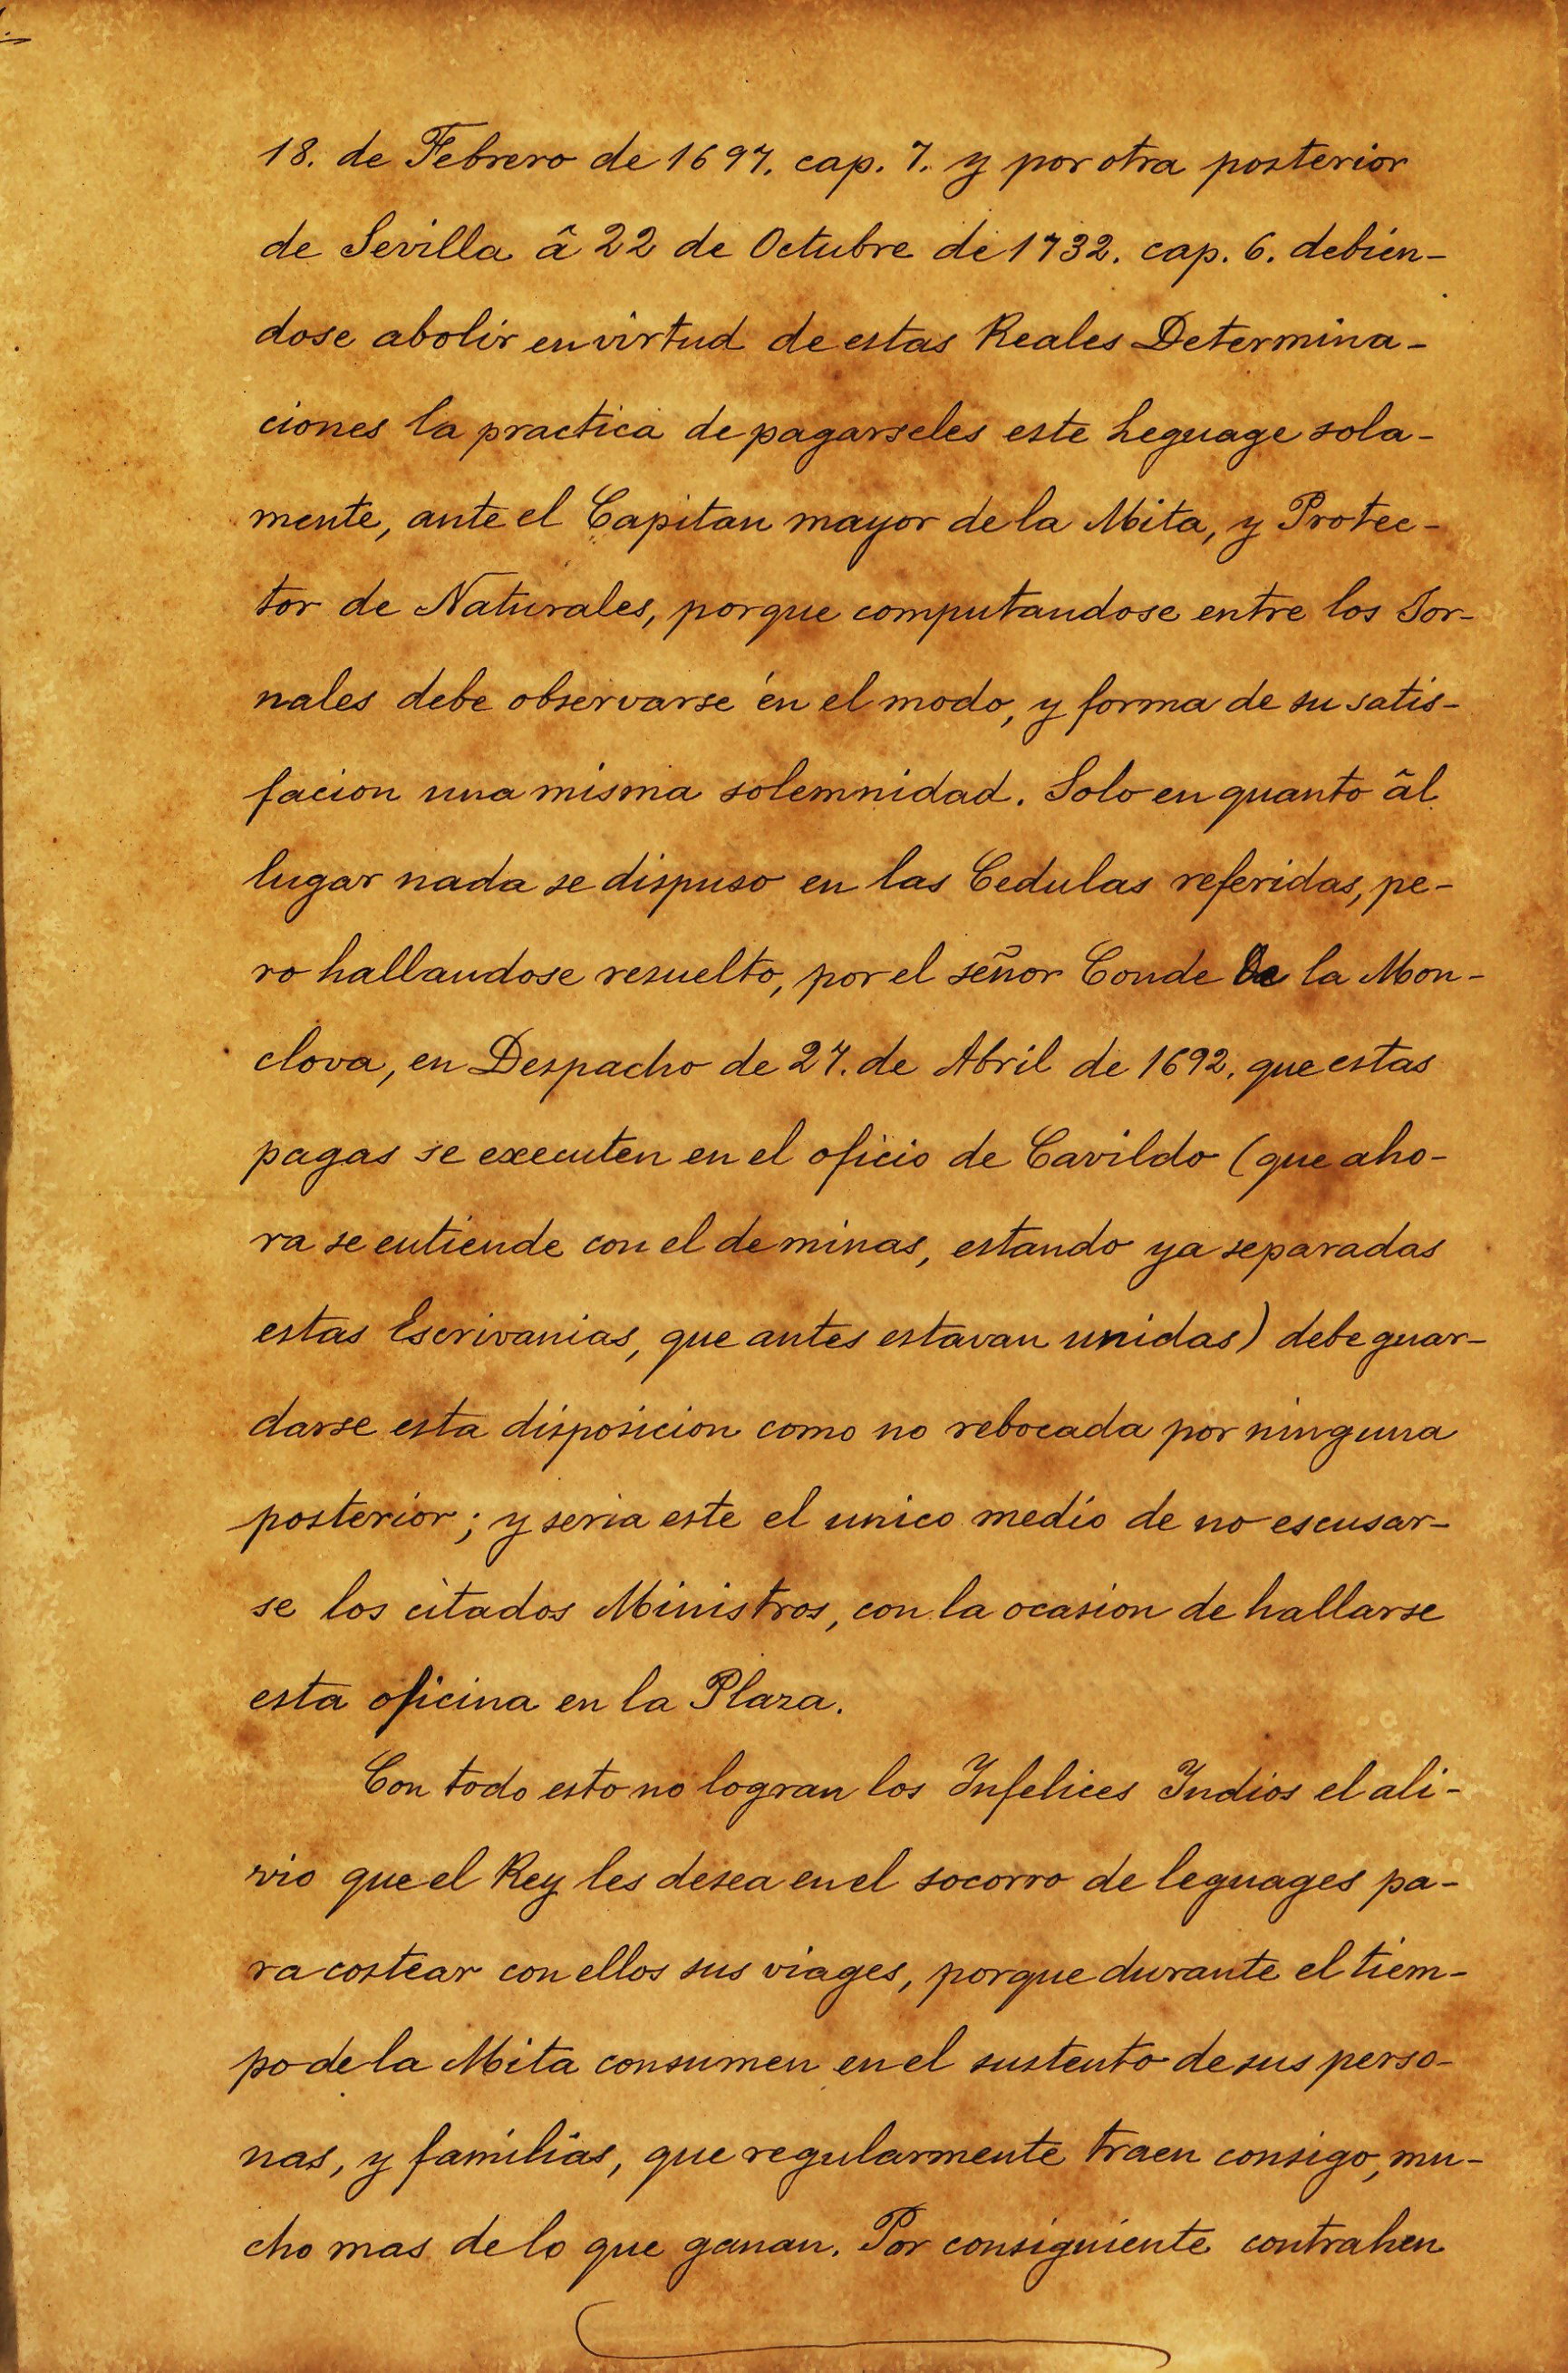 18. de Febrero de 1697. cap. 7. y por otra posterior
de Sevilla â 22 de Octubre de 1732. cap. 6. debien-
dose abolir en virtud de estas Reales Determina-
ciones la practica de pagarseles este Leguage sola-
mente, ante el Capitan mayor de la Mita, y Protec-
tor de Naturales, porque computandose entre los Jor-
nales debe observarse en el modo, y forma de su satis-
facion una misma solemnidad. Solo en quanto âl
lugar nada se dispuso en las Cedulas referidas, pe-
ro hallandose resuelto, por el señor Conde de la Mon-
clova, en Despacho de 27. de Abril de 1692. que estas
pagas se executen en el oficio de Cavildo (que aho-
ra se entiende con el de minas, estando ya separadas
estas Escrivanias, que antes estavan unidas) debe guar-
darse esta disposicion como no rebocada por ninguna
posterior; y seria este el unico medio de no escusar-
se los citados Ministros, con la ocasion de hallarse
esta oficina en la Plaza.
Con todo esto no logran los Infelices Indios el ali-
vio que el Rey les desea en el socorro de leguages pa-
ra costear con ellos sus viages, porque durante el tiem-
po de la Mita consumen en el sustento de sus perso-
nas, y familias, que regularmente traen consigo, mu-
cho mas de lo que ganan. Por consiguiente contrahen